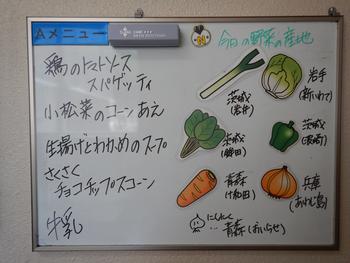 Aメニュー
今日の野菜の産地
鶏のトマトソース
スパゲッティ
小松菜のコーンあえ
生揚げとわかめのスープ
さくさく
チョコチップスコーン
牛乳
茨城
岩手
(新いわて)
茨城
(鉾田)
茨城
青森
兵庫
(あわじ島)
にんにく
青森(おいらせ)
N